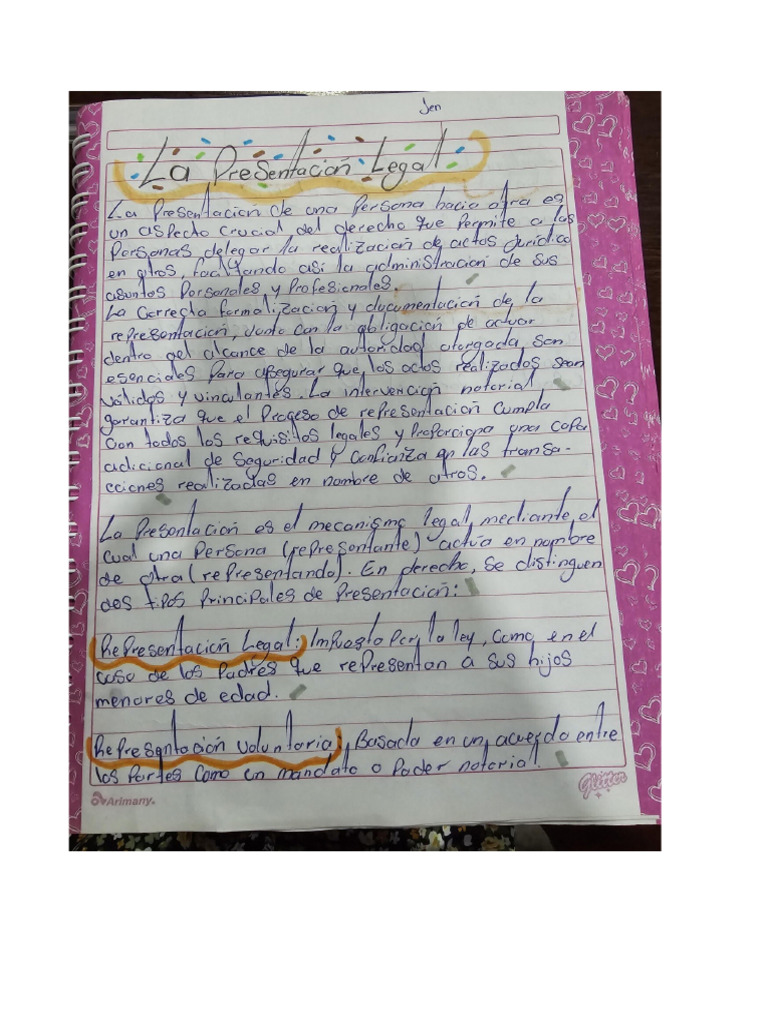 Jen
La Presentación Legal
La Presentación de una Persona hacia otra es
un aspecto crucial del derecho que permite a las
Personas delegar la realización de actos jurídico
en otros, facilitando asi la administración de sus
asuntos Personales y Profesionales.
La correcta formalización y documentación de la
representación, junto con la obligación de actuar
dentro del alcance de la autoridad otorgada, son
esenciales Para asegurar que los actos realizados sean
válidos y vinculantes. La intervención notarial
garantiza que el Proceso de representación cumpla
con todos los requisitos legales y Proporciona una capa
adicional de Seguridad y Confianza en las transa-
cciones realizadas en nombre de otros.
La Presentación es el mecanismo legal mediante el
cual una Persona (representante) actúa en nombre
de otra (representando). En derecho, se distinguen
dos tipos Principales de Presentación:
Representación Legal: Impuesto Por la ley, como en el
caso de los Padres que representan a sus hijos
menores de edad.
Representación Voluntaria: Basada en un acuerdo entre
las Partes como un mandato o Poder notarial.
Arimany.
Glitter